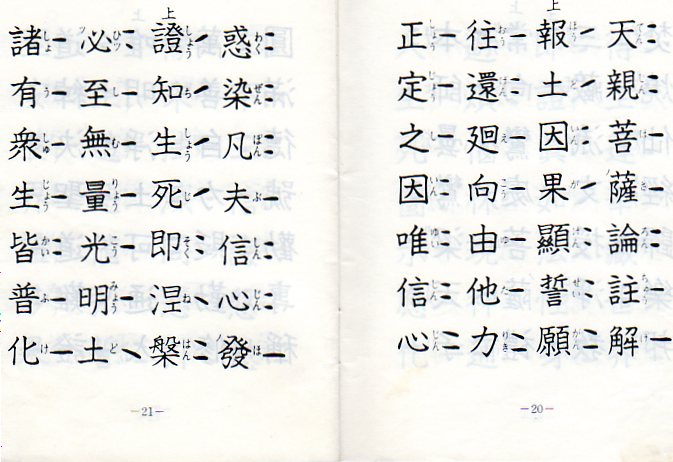 上
天親菩薩論註解
報土因果顯誓願
往還廻向由他力
正定之因唯信心
－20－
惑染凡夫信心發
上
證知生死即涅槃
必至無量光明土
諸有衆生皆普化
－21－